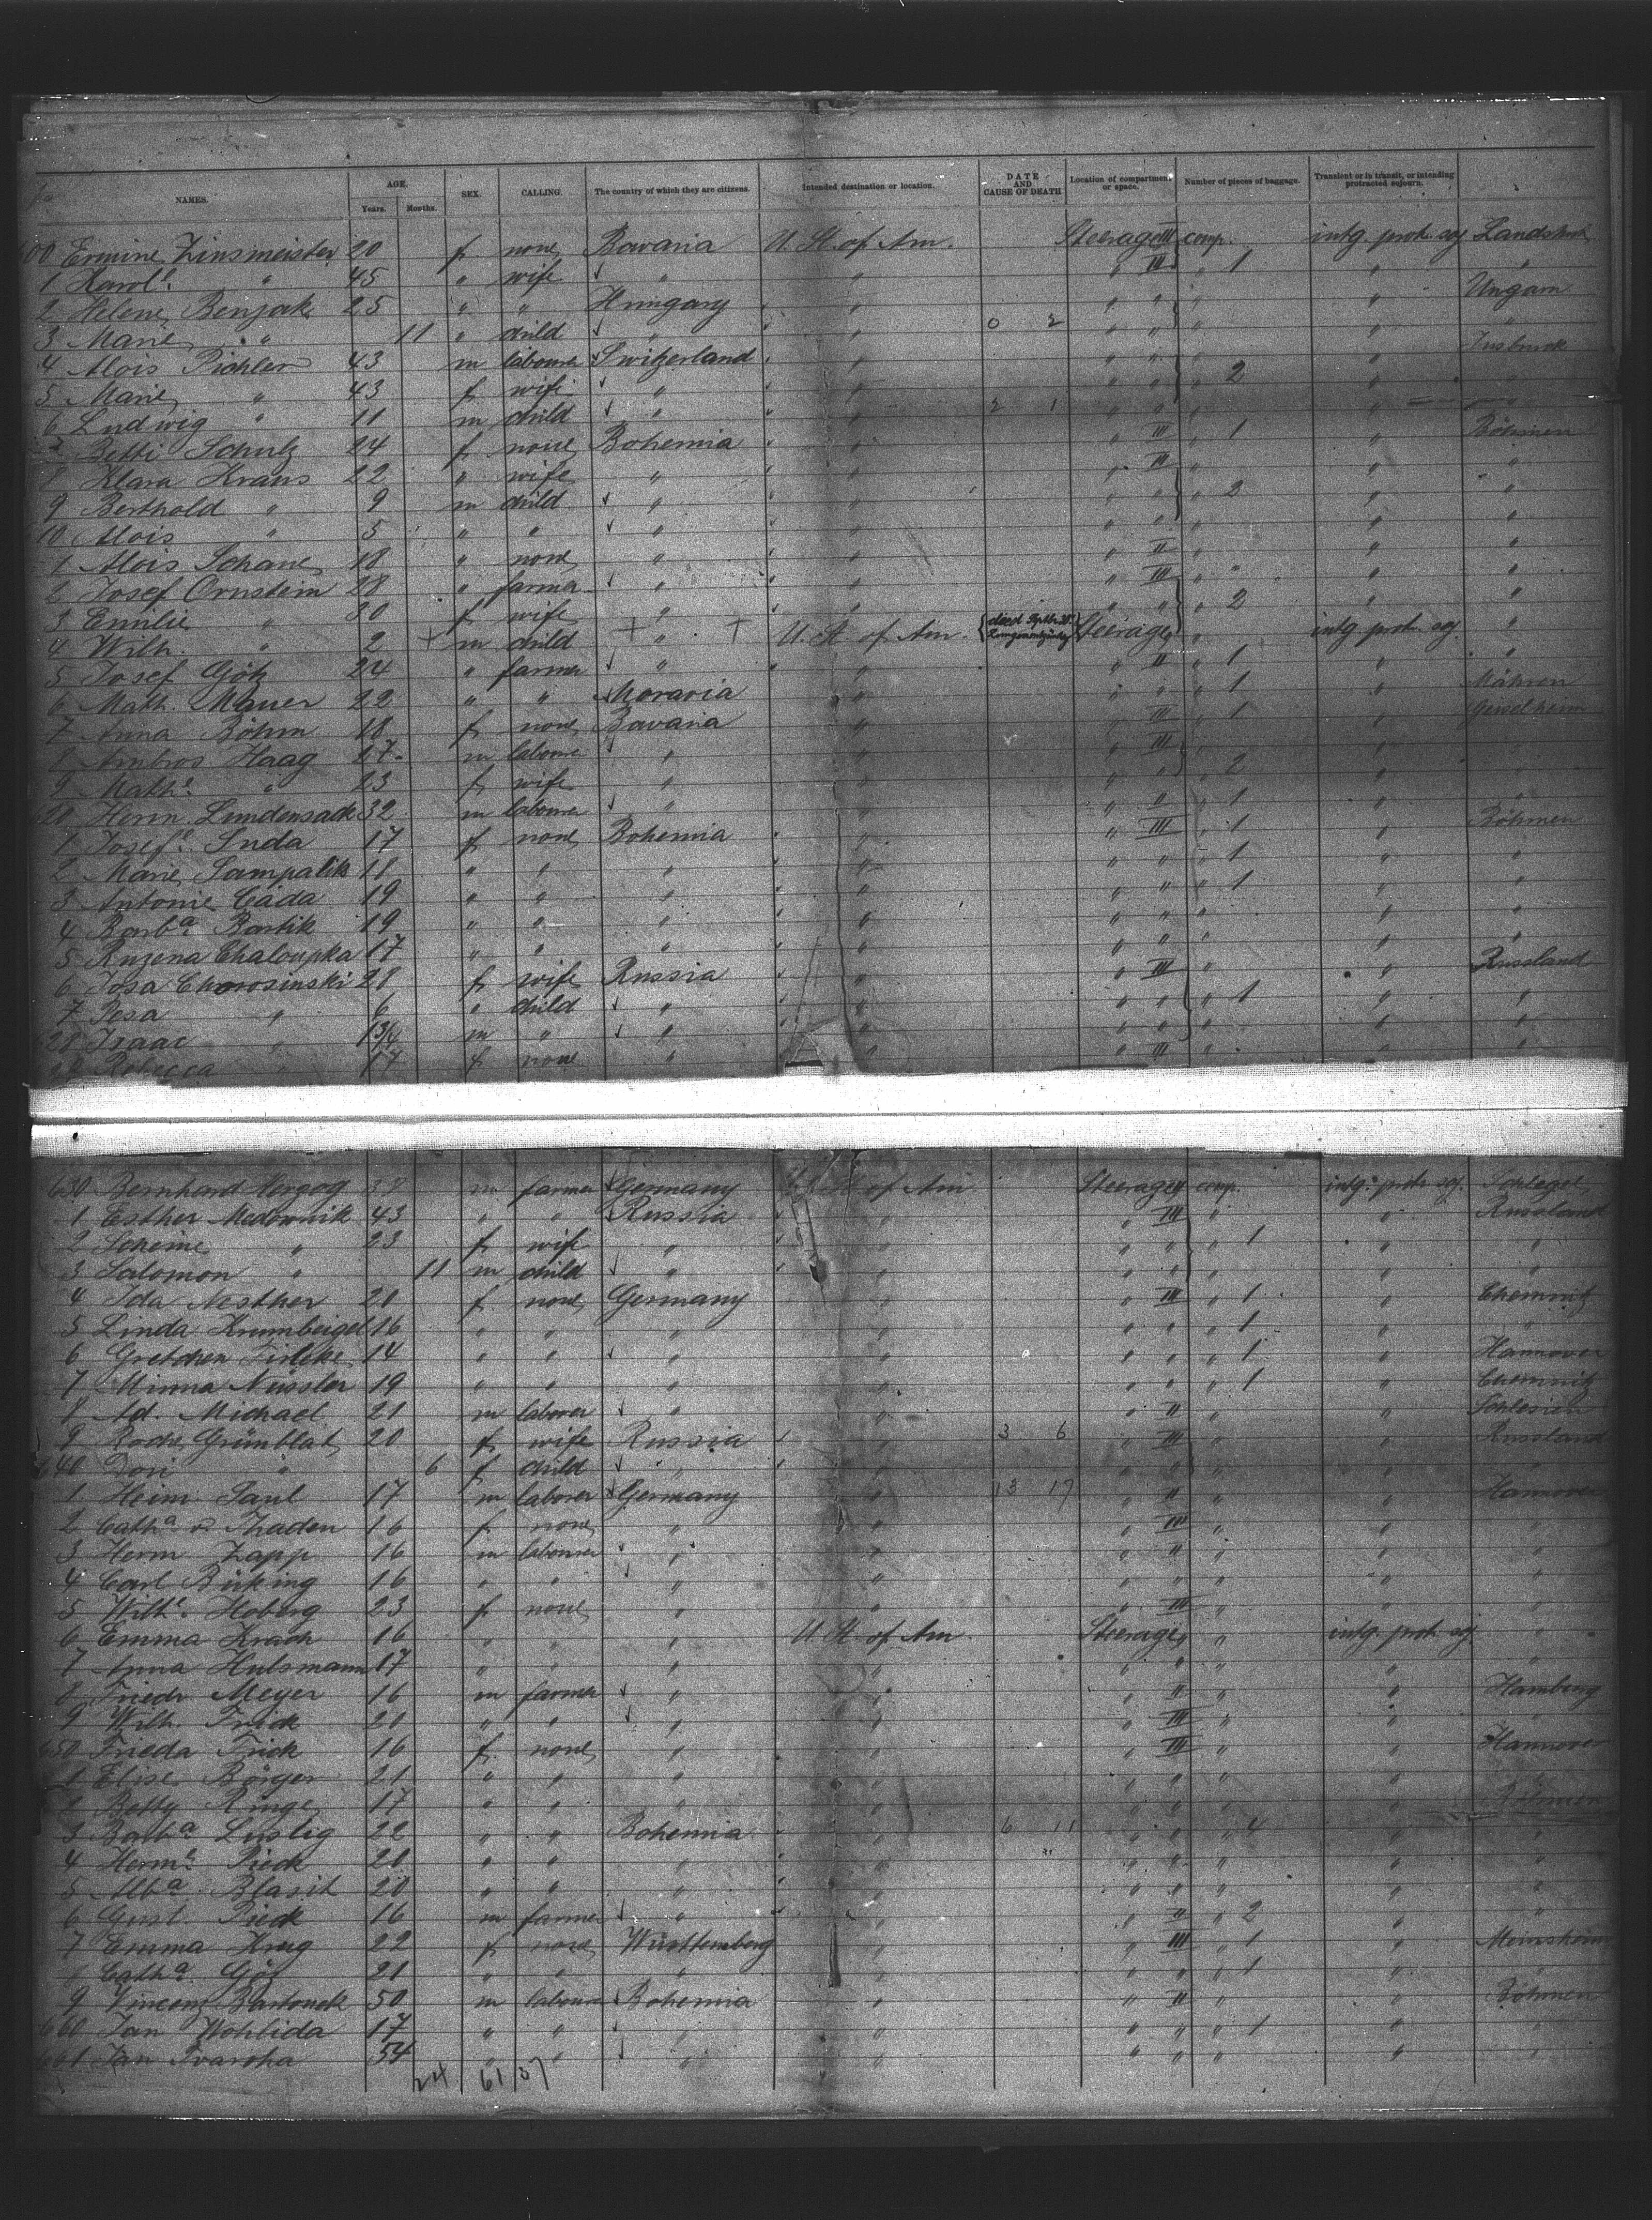 NAMES. AGE. Years. Months. SEX. CALLING. The country of which they are citizens. Intended destination or location. DATE AND CAUSE OF DEATH Location of compartment or space. Number of pieces of baggage. Transient or in transit, or intending protracted sojourn.
00 Ermine Zinsmeister 20 f none Bavaria U. St. of Am. Steerage III comp. intg. prot. soj
1 Karole " 45 " wife " " " III " 1 " "
2 Helene Benjak 25 " " Hungary " " " " " Ungarn
3 Marie " 11 " child " " 0 2 " " " " "
4 Alois Pichler 43 m labourer Switzerland " " " " "
5 Marie " 43 f wife " " " " " 2 " "
6 Ludwig " 11 m child " " 2 1 " " " "
7 Betti Schulz 24 f none Bohemia " " III " 1 " Böhmen
8 Klara Kraus 22 " wife " " " III " " "
9 Berthold " 9 m child " " " " " 2 " "
10 Alois " 5 " " " " " " " " "
1 Alois Schane 18 " none " " " II " " "
2 Josef Ornstein 28 " farmer " " " III " " "
3 Emilie " 30 f wife " " " " " 2 " "
4 Wilh. " 2 + m child + " + U. St. of Am. Steerage " " intg. prot. soj. "
5 Josef Götz 24 " farmer " " " II " 1 " "
6 Math. Mauer 22 " " Moravia " " " " 1 " Mähren
7 Anna Böhm 18 f none Bavaria " " III " 1 "
8 Ambros Haag 27 m labourer " " " III " "
9 Mathe " 23 f wife " " " " " 2 " "
20 Herm. Lundensack 32 m labourer " " " II " 1 " "
1 Josefe Suda 17 f none Bohemia " " III " 1 " Böhmen
2 Marie Sampalik 18 " " " " " " " 1 " "
3 Antonie Cáda 19 " " " " " " " 1 " "
4 Barba Bartik 19 " " " " " " " " "
5 Ruzena Chaloupka 17 " " " " " " " " "
6 Josa Chorosinski 28 f wife Russia " " III " " Russland
7 Pesa " 6 " child " " " " " 1 " "
28 Isaac " 1 3/4 m " " " " " " " "
29 Rebecca " 17 f none " " " III " " "
630 Bernhard Herzog m farmer Germany of Am Steerage II comp. intg. prot. soj. Schlegel
1 Esther Medownik 43 " " Russia " " III " " Russland
2 Scheine " 23 f wife " " " " " 1 " "
3 Salomon " 11 m child " " " " " " "
4 Ida Nesther 20 f none Germany " " III " 1 " Chemnitz
5 Linda Krumbeigel 16 " " " " " " " 1 " "
6 Gretchen 14 " " " " " " " 1 " Hannover
7 Minna Nüssler 19 " " " " " " " 1 " Chemnitz
8 Ad. Michael 21 m laborer " " " II " " Schlesien
9 Grünblat 20 f wife Russia " 3 6 " III " " Russland
640 Dori " 6 f child " " " " " " "
1 Heinr. Paul 17 m laborer Germany " 13 17 " II " " Hannover
2 Catha v. Thaden 16 f none " " " III " " "
3 Herm Zapp 16 m labourer " " " II " " "
4 Carl Büking 16 " " " " " " " " "
5 Wilhe. Hoberg 23 f none " " " III " " "
6 Emma Krach 16 " " " U. St. of Am Steerage " " intg. prot. soj. "
7 Anna Hulsmann 17 " " " " " " " " "
8 Friedr Meyer 16 m farmer " " " II " " Hamburg
9 Wilh. Frick 20 " " " " " III " " "
650 Frieda Frick 16 f none " " " III " " Hannover
1 Elise Börger 21 " " " " " " " " "
2 Betty Ringe 17 " " " " " " " "
3 Barba Lustig 22 " " Bohemia " 6 11 " " " 4 " "
4 Herme. Pieck 20 " " " " " " " " "
5 Alba. Blasik 20 " " " " " " " " "
6 Gust. Pieck 16 m farmer " " " II " 2 " "
7 Emma Krug 22 f none Württemberg " " III " 1 "
8 Catha. Göz 21 " " " " " " " 1 " "
9 Vincenz Bartonek 50 m labourer Bohemia " " II " " Böhmen
660 Jan Wohlida 17 " " " " " " " 1 " "
661 Jan Tvaroha 54 " " " " " " " " "
24 61 37